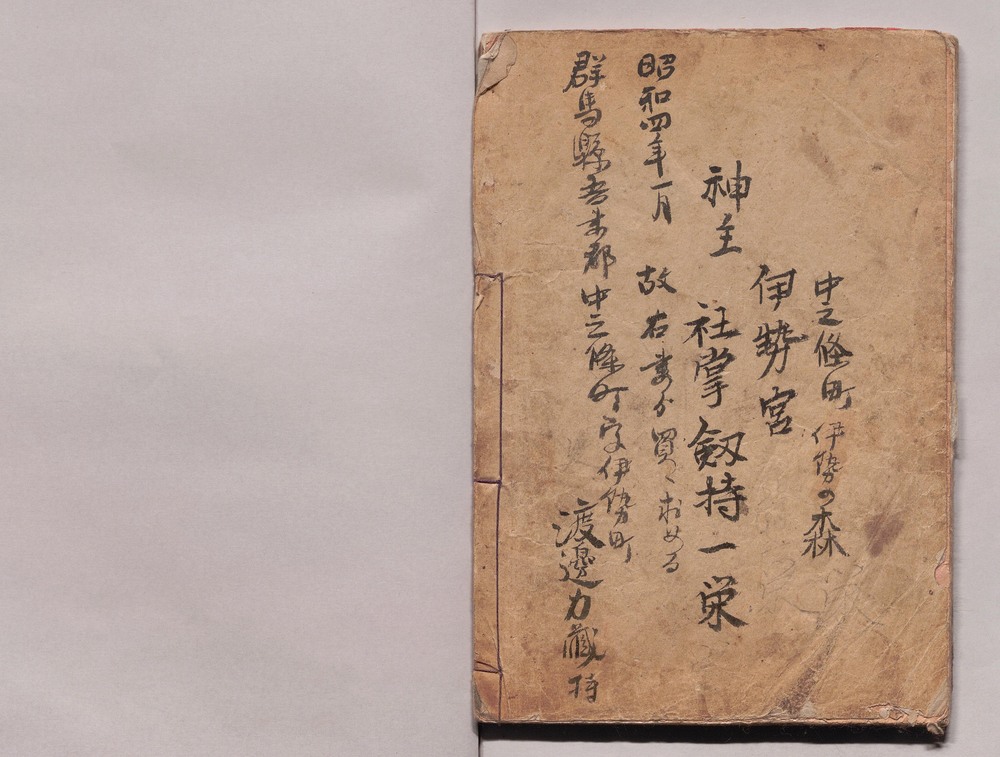 中之條町 伊勢の森
伊勢宮
神主 社掌 劔持一栄
昭和四年一月 故右妻ゟ買求める
群馬縣吾妻郡中之條町字伊勢町
渡邊力藏 持